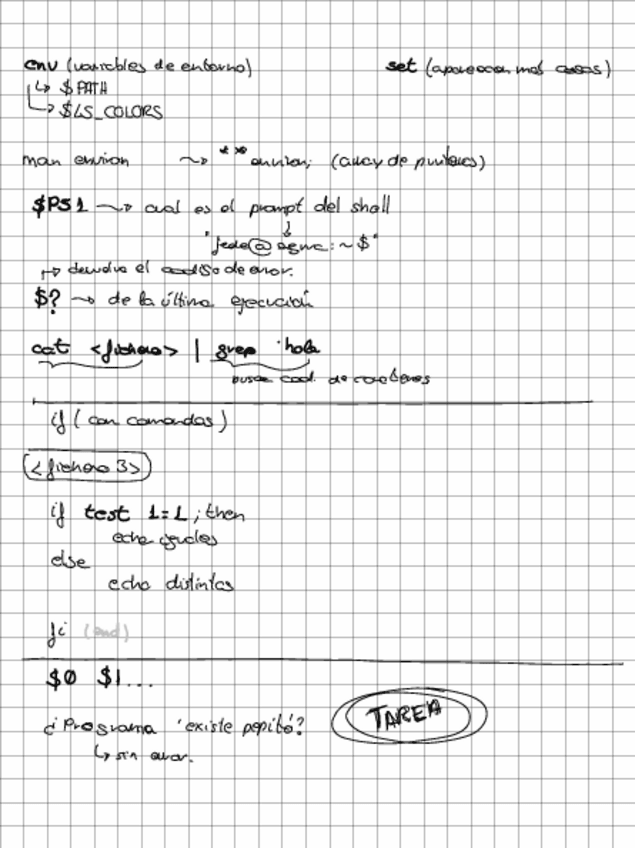 env (variables de entorno)
set (aparecen mas cosas)
↳ $PATH
↳ $LS_COLORS
man environ ⇝ **environ; (array de punteros)
$PS1 ⇝ cual es el prompt del shell
"fede@ :~$"
↱ devuelve el codigo de error.
$? ⇝ de la última ejecución
cat <fichero> | grep 'hola
buscar cad. de caracteres
if ( con comandos )
<fichero 3>
if test 1=1 ; then
echo iguales
else
echo distintos
fi (end)
$0 $1...
¿Programa 'existe pepito'?
↳ sin error.
TAREA